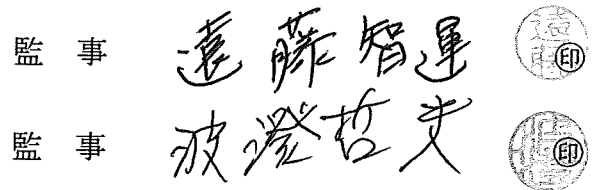 監事 遠藤智運 印
監事 波澄哲夫 印